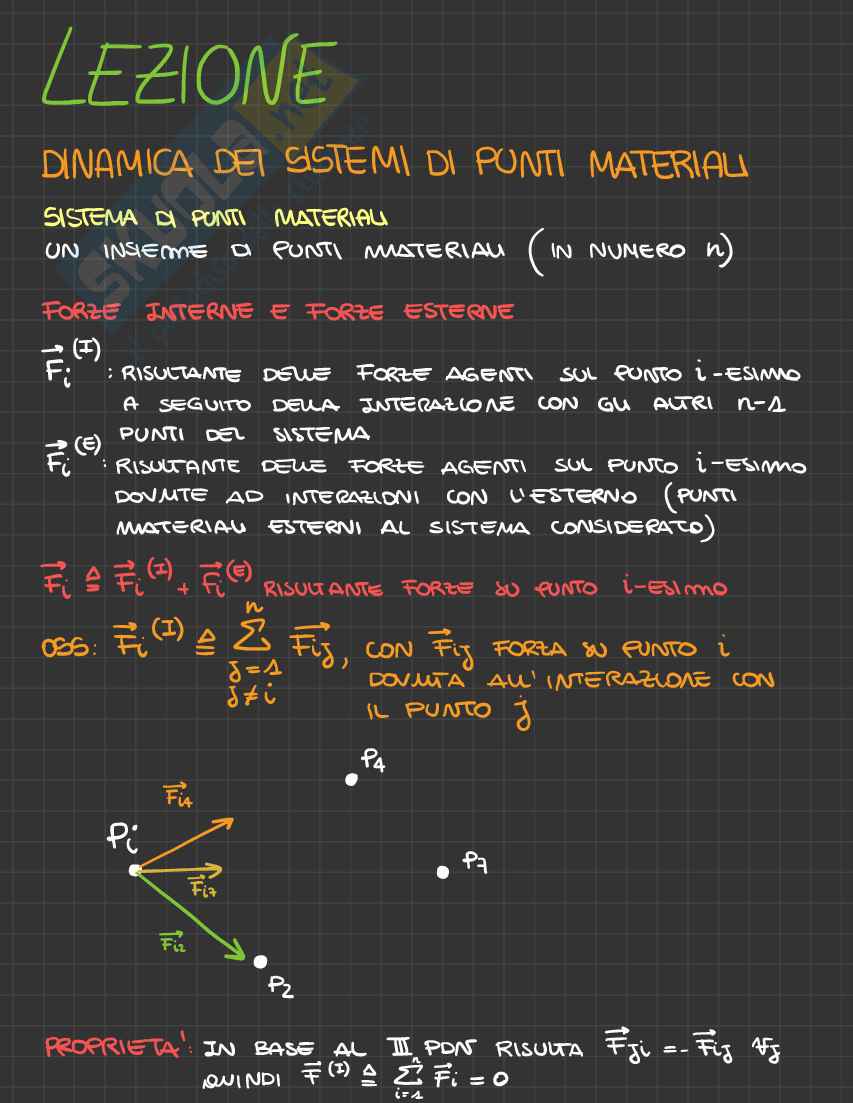 LEZIONE
DINAMICA DEI SISTEMI DI PUNTI MATERIALI
SISTEMA DI PUNTI MATERIALI
UN INSIEME DI PUNTI MATERIALI (IN NUMERO n)
FORZE INTERNE E FORZE ESTERNE
F⃗ᵢ^(I) : RISULTANTE DELLE FORZE AGENTI SUL PUNTO i-ESIMO
A SEGUITO DELLA INTERAZIONE CON GLI ALTRI n-1
PUNTI DEL SISTEMA
F⃗ᵢ^(E) : RISULTANTE DELLE FORZE AGENTI SUL PUNTO i-ESIMO
DOVUTE AD INTERAZIONI CON L'ESTERNO (PUNTI
MATERIALI ESTERNI AL SISTEMA CONSIDERATO)
F⃗ᵢ ≜ F⃗ᵢ^(I) + F⃗ᵢ^(E) RISULTANTE FORZE SU PUNTO i-ESIMO
OSS: F⃗ᵢ^(I) ≜ Σ_{j=1, j≠i}^{n} F⃗ij, CON F⃗ij FORZA SU PUNTO i
DOVUTA ALL'INTERAZIONE CON
IL PUNTO j
P4
F⃗i4
Pi
P7
F⃗i7
F⃗i2
P2
PROPRIETA': IN BASE AL III PDN RISULTA F⃗ji = -F⃗ij ∀j
QUINDI F⃗^(I) ≜ Σ_{i=1}^{n} F⃗i = 0
SKUOLA.net